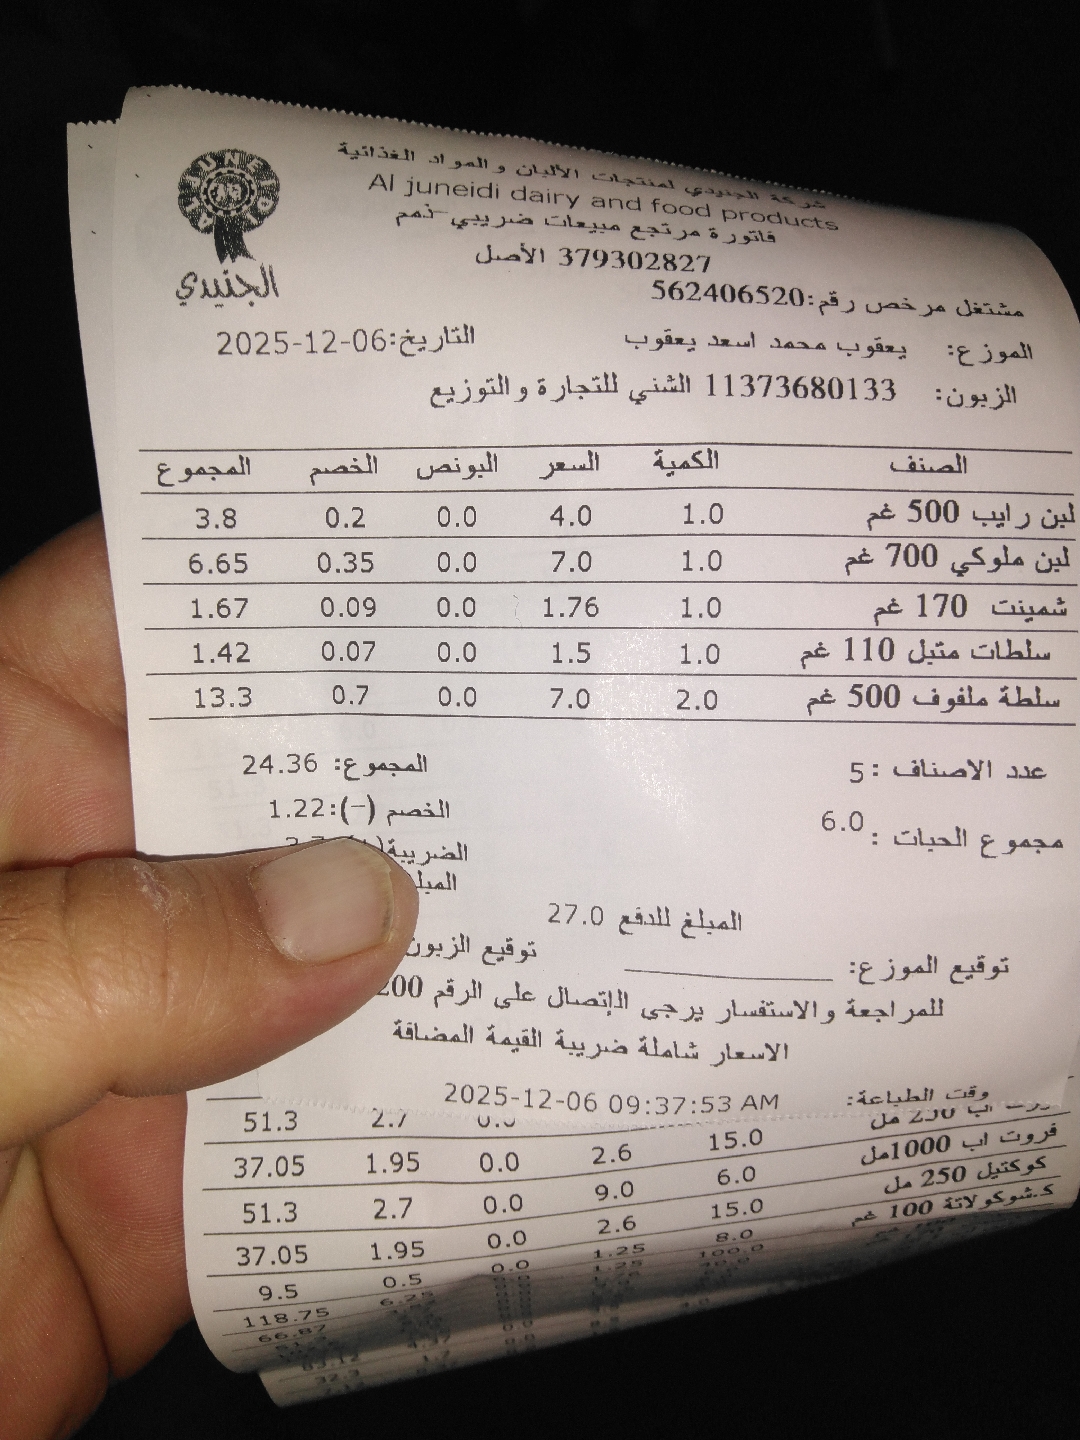 AL JUNEIDI
الجنيدي
شركة الجنيدي لمنتجات الألبان والمواد الغذائية
Al juneidi dairy and food products
فاتورة مرتجع مبيعات ضريبي-ذمم
379302827 الأصل
مشتغل مرخص رقم:562406520
الموزع: يعقوب محمد اسعد يعقوب التاريخ:2025-12-06
الزبون: 11373680133 الشني للتجارة والتوزيع
الصنف الكمية السعر البونص الخصم المجموع
لبن رايب 500 غم 1.0 4.0 0.0 0.2 3.8
لبن ملوكي 700 غم 1.0 7.0 0.0 0.35 6.65
شمينت 170 غم 1.0 1.76 0.0 0.09 1.67
سلطات متبل 110 غم 1.0 1.5 0.0 0.07 1.42
سلطة ملفوف 500 غم 2.0 7.0 0.0 0.7 13.3
عدد الاصناف : 5 المجموع: 24.36
مجموع الحبات : 6.0 الخصم (-):1.22
الضريبة
المبلغ للدفع 27.0
توقيع الموزع: توقيع الزبون
للمراجعة والاستفسار يرجى الإتصال على الرقم
الاسعار شاملة ضريبة القيمة المضافة
وقت الطباعة: 2025-12-06 09:37:53 AM
مل 2.7 51.3
فروت اب 1000مل 15.0 2.6 0.0 1.95 37.05
كوكتيل 250 مل 6.0 9.0 0.0 2.7 51.3
ك.شوكولاتة 100 غم 15.0 2.6 0.0 1.95 37.05
8.0 1.25 0.0 0.5 9.5
100.0 1.25 6.25 118.75
66.87
83.12
32.3